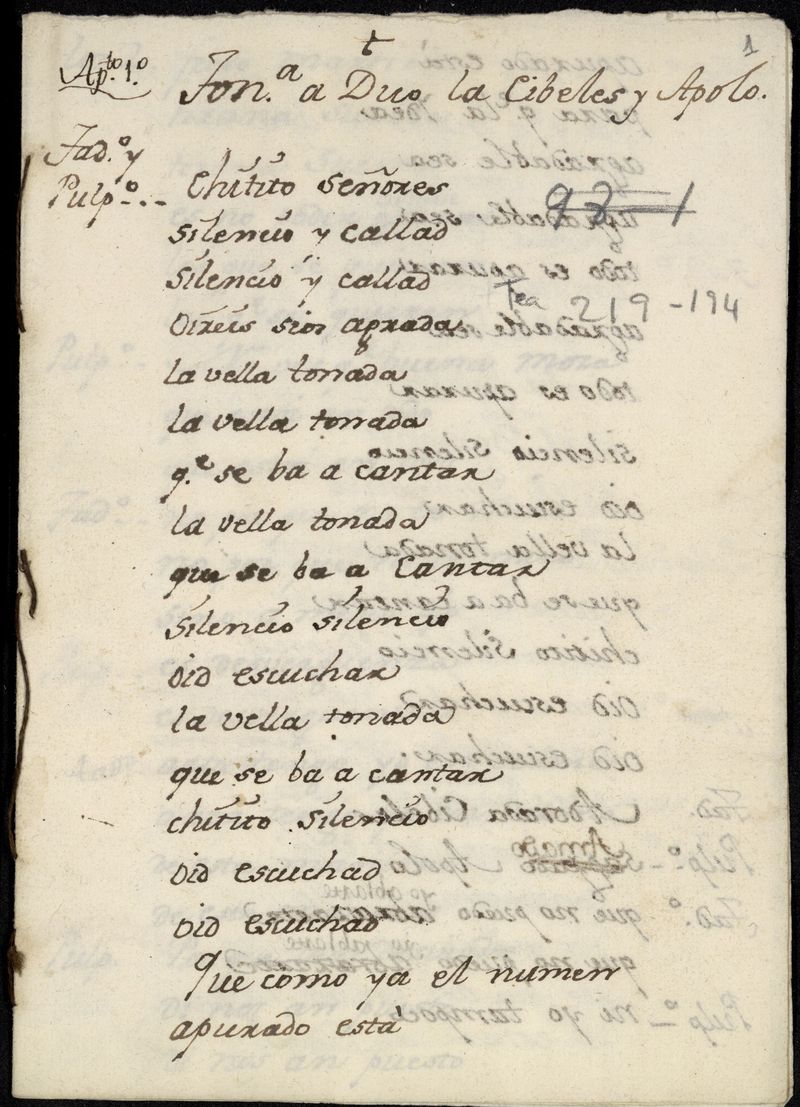 †
1
Ap.to 1.º
Ton.ª a Duo la Cibeles y Apolo.
Tad.º y
Pulp.º..
Chitito señores
92-1
silencio y callad
silencio y callad
Tea 219-194
oireis si os agrada
la vella tonada
la vella tonada
q.e se ba a cantar
la vella tonada
que se ba a Cantar
silencio silencio
oid escuchar
la vella tonada
que se ba a cantar
chitito silencio
oid escuchad
oid escuchad
Que como ya el numen
apurado está